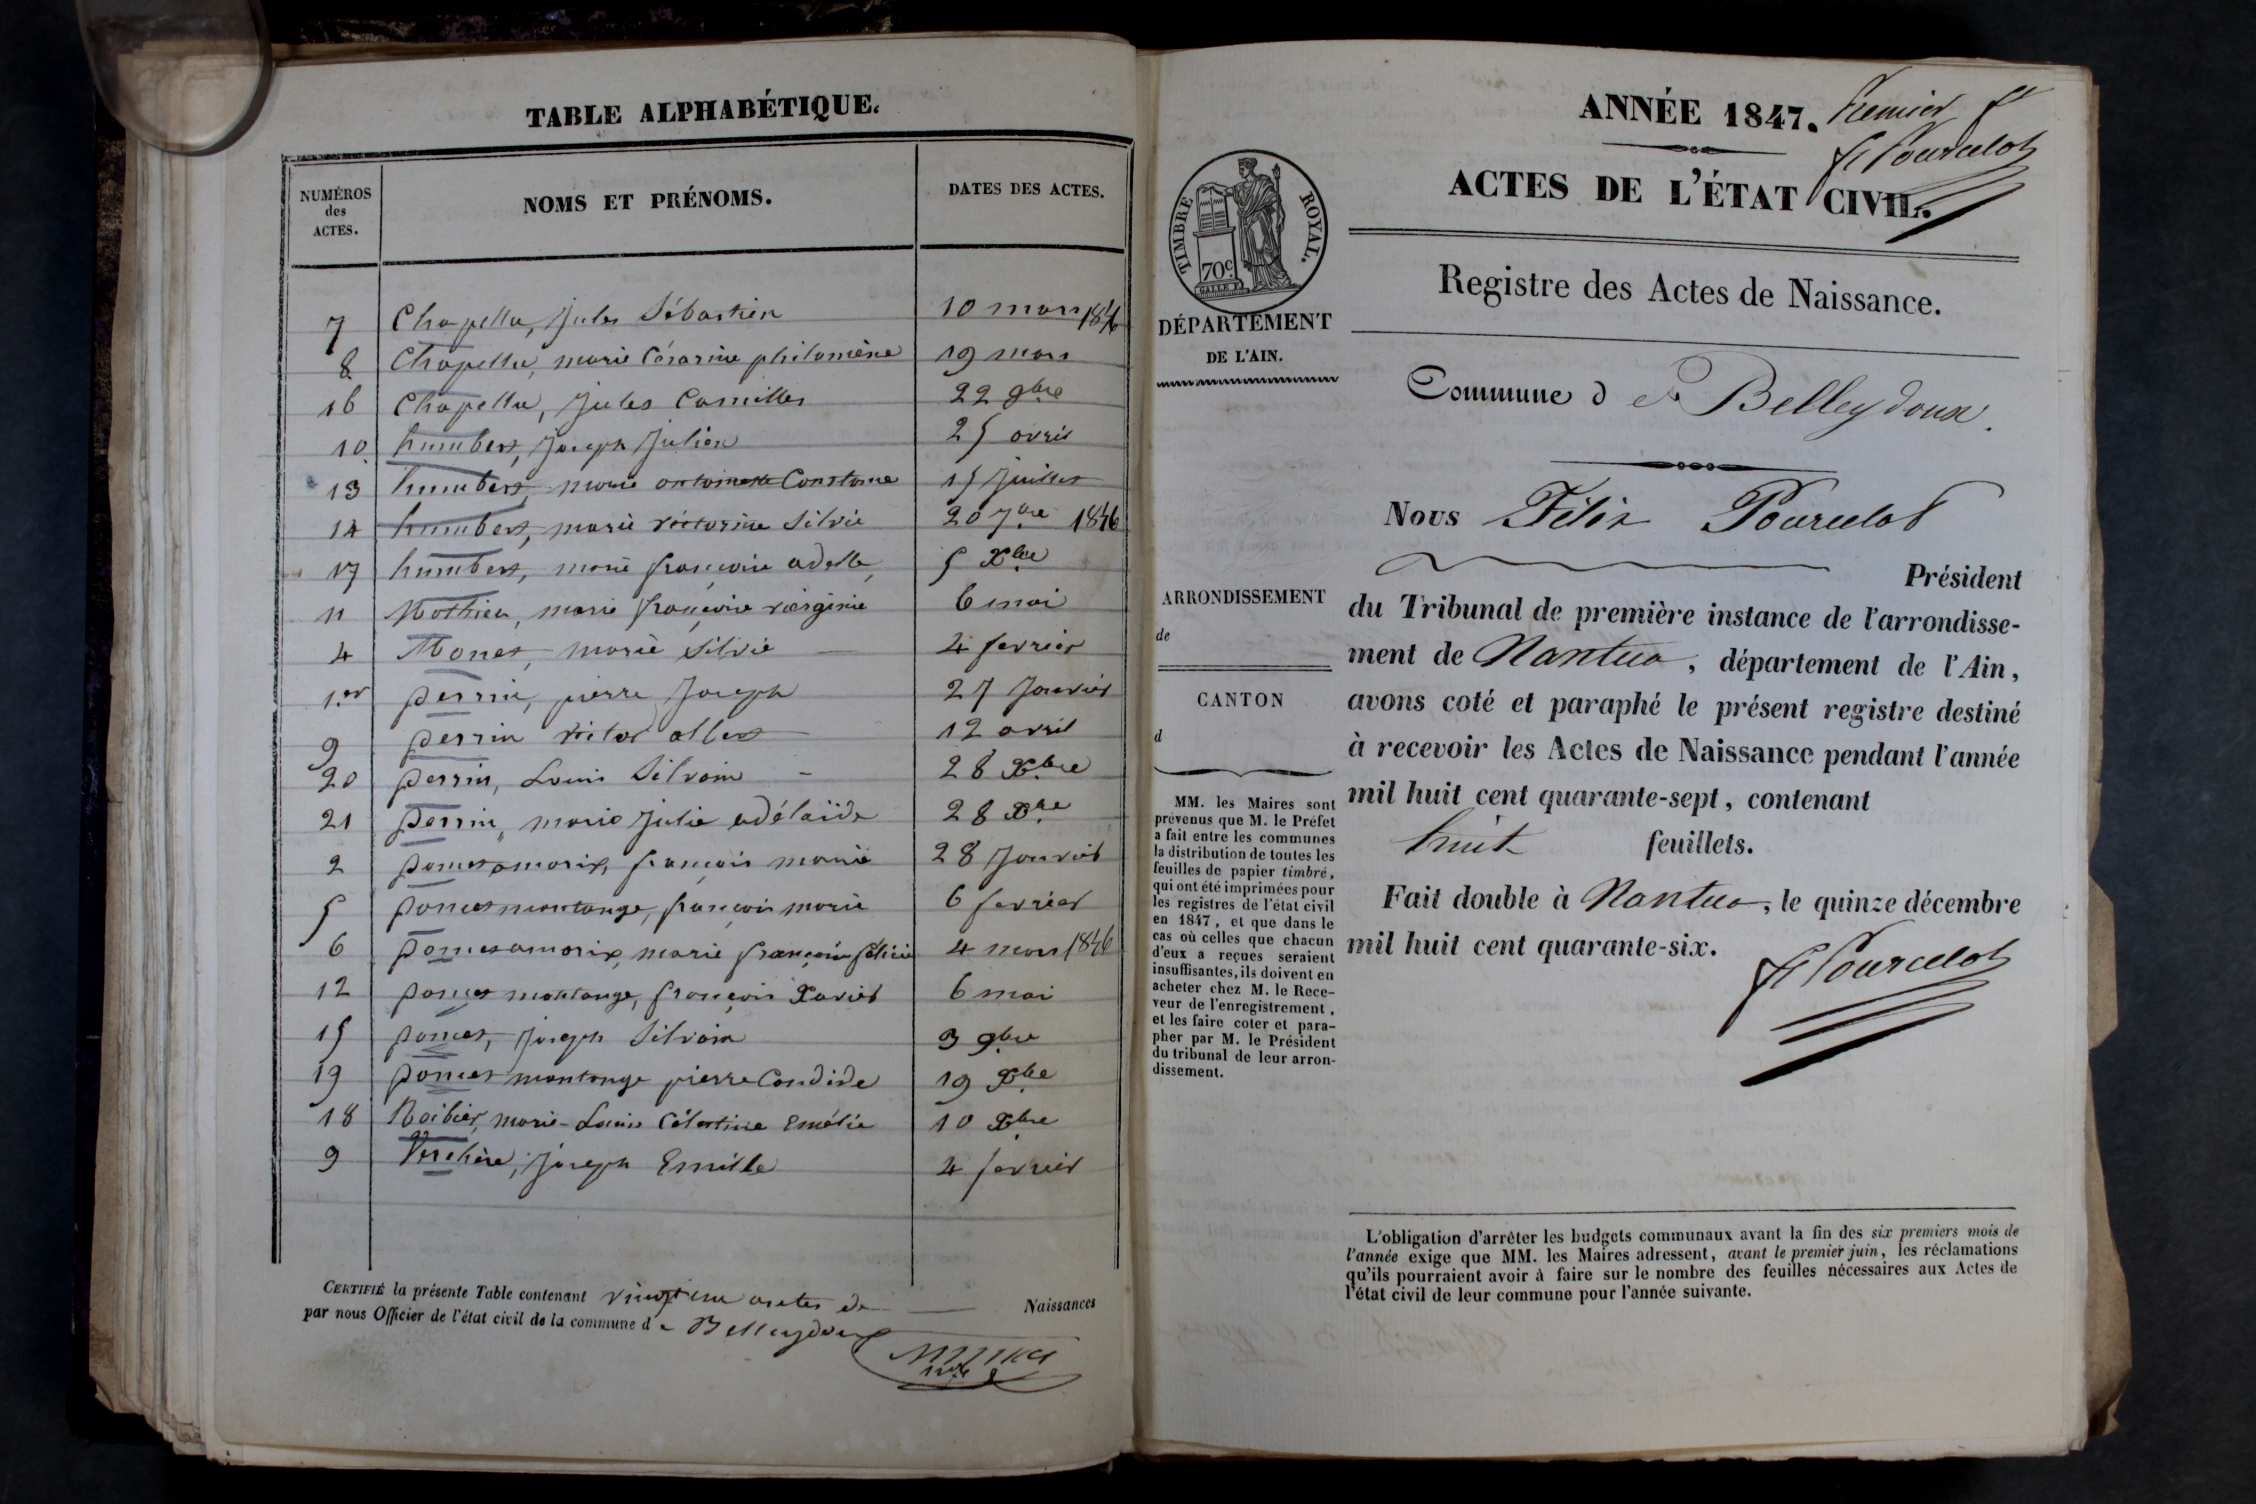 TABLE ALPHABÉTIQUE.
NUMÉROS des ACTES. NOMS ET PRÉNOMS. DATES DES ACTES.
7 Chapellu, Jules Sébastien 10 mars 1846
8 Chapellu, marie Césarine philomène 19 mars
16 Chapellu, Jules Camilles 22 9bre
10 humbert, Joseph Julien 25 avril
13 humbert, marie antoinette Constance 15 Juillet
14 humbert, marie victorine Silvie 20 7bre 1846
17 humbert, marie françoise adelle, 5 Xbre
11 Mathieu, marie françoise virginie 6 mai
4 Monet, marie Silvie 4 fevrier
1.er perrin, pierre Joseph 27 Janvier
9 perrin victor albert 12 avril
20 perrin, Louis Silvain 28 Xbre
21 perrin, marie Julie adélaïde 28 Xbre
2 poncet amorix, françois marie 28 Janvier
5 poncet montange, françois marie 6 fevrier
6 poncet amorix, marie françoise félicie 4 mars 1846
12 poncet montange, françois Xavier 6 mai
15 poncet, Joseph Silvain 3 9bre
19 poncet montange pierre Candide 19 Xbre
18 Roibier, marie-Louise Célestine Emélie 10 Xbre
9 Verchère, Joseph Emille 4 fevrier
CERTIFIÉ la présente Table contenant vingt un actes de Naissances
par nous Officier de l'état civil de la commune d e Belleydoux
ANNÉE 1847. Premier ft
F Pourcelot
ACTES DE L'ÉTAT CIVIL.
TIMBRE ROYAL.
70c
Registre des Actes de Naissance.
DÉPARTEMENT
DE L'AIN.
Commune d e Belleydoux.
Nous Félix Pourcelot
Président
du Tribunal de première instance de l'arrondisse-
ment de Nantua, département de l'Ain,
avons coté et paraphé le présent registre destiné
à recevoir les Actes de Naissance pendant l'année
mil huit cent quarante-sept, contenant
huit feuillets.
Fait double à Nantua, le quinze décembre
mil huit cent quarante-six.
F Pourcelot
ARRONDISSEMENT
de
CANTON
d
MM. les Maires sont
prévenus que M. le Préfet
a fait entre les communes
la distribution de toutes les
feuilles de papier timbré,
qui ont été imprimées pour
les registres de l'état civil
en 1847, et que dans le
cas où celles que chacun
d'eux a reçues seraient
insuffisantes, ils doivent en
acheter chez M. le Rece-
veur de l'enregistrement,
et les faire coter et para-
pher par M. le Président
du tribunal de leur arron-
dissement.
L'obligation d'arrêter les budgets communaux avant la fin des six premiers mois de
l'année exige que MM. les Maires adressent, avant le premier juin, les réclamations
qu'ils pourraient avoir à faire sur le nombre des feuilles nécessaires aux Actes de
l'état civil de leur commune pour l'année suivante.